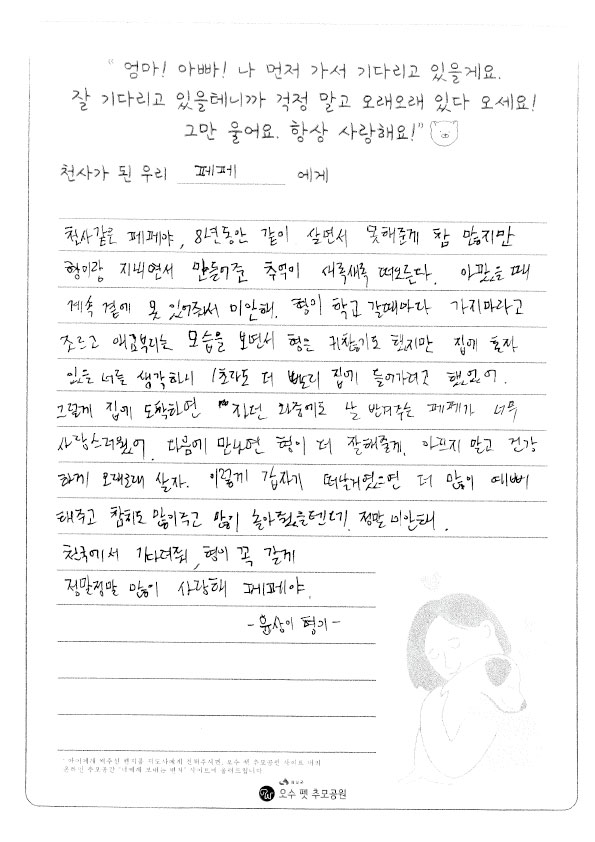 “ 엄마! 아빠! 나 먼저 가서 기다리고 있을게요.
잘 기다리고 있을테니까 걱정 말고 오래오래 있다 오세요!
그만 울어요. 항상 사랑해요!”
천사가 된 우리 페페 에게
천사같은 페페야, 8년동안 같이 살면서 못해준게 참 많지만
형이랑 지내면서 만들어준 추억이 새록새록 떠오른다. 아팠을 때
계속 곁에 못 있어줘서 미안해. 형이 학교 갈때마다 가지마라고
조르고 애교부리는 모습을 보면서 형은 귀찮기도 했지만 집에 혼자
있을 너를 생각하니 1초라도 더 빨리 집에 들어가려고 했었어.
그렇게 집에 도착하면 자던 와중에도 날 반겨주는 페페가 너무
사랑스러웠어. 다음에 만나면 형이 더 잘해줄게. 아프지 말고 건강
하게 오래오래 살자. 이렇게 갑자기 떠날거였으면 더 많이 예뻐
해주고 참치도 많이주고 많이 놀아줬을텐데. 정말 미안해.
천국에서 기다려줘, 형이 꼭 갈게
정말정말 많이 사랑해 페페야.
- 윤상이 형아 -
오수 펫 추모공원